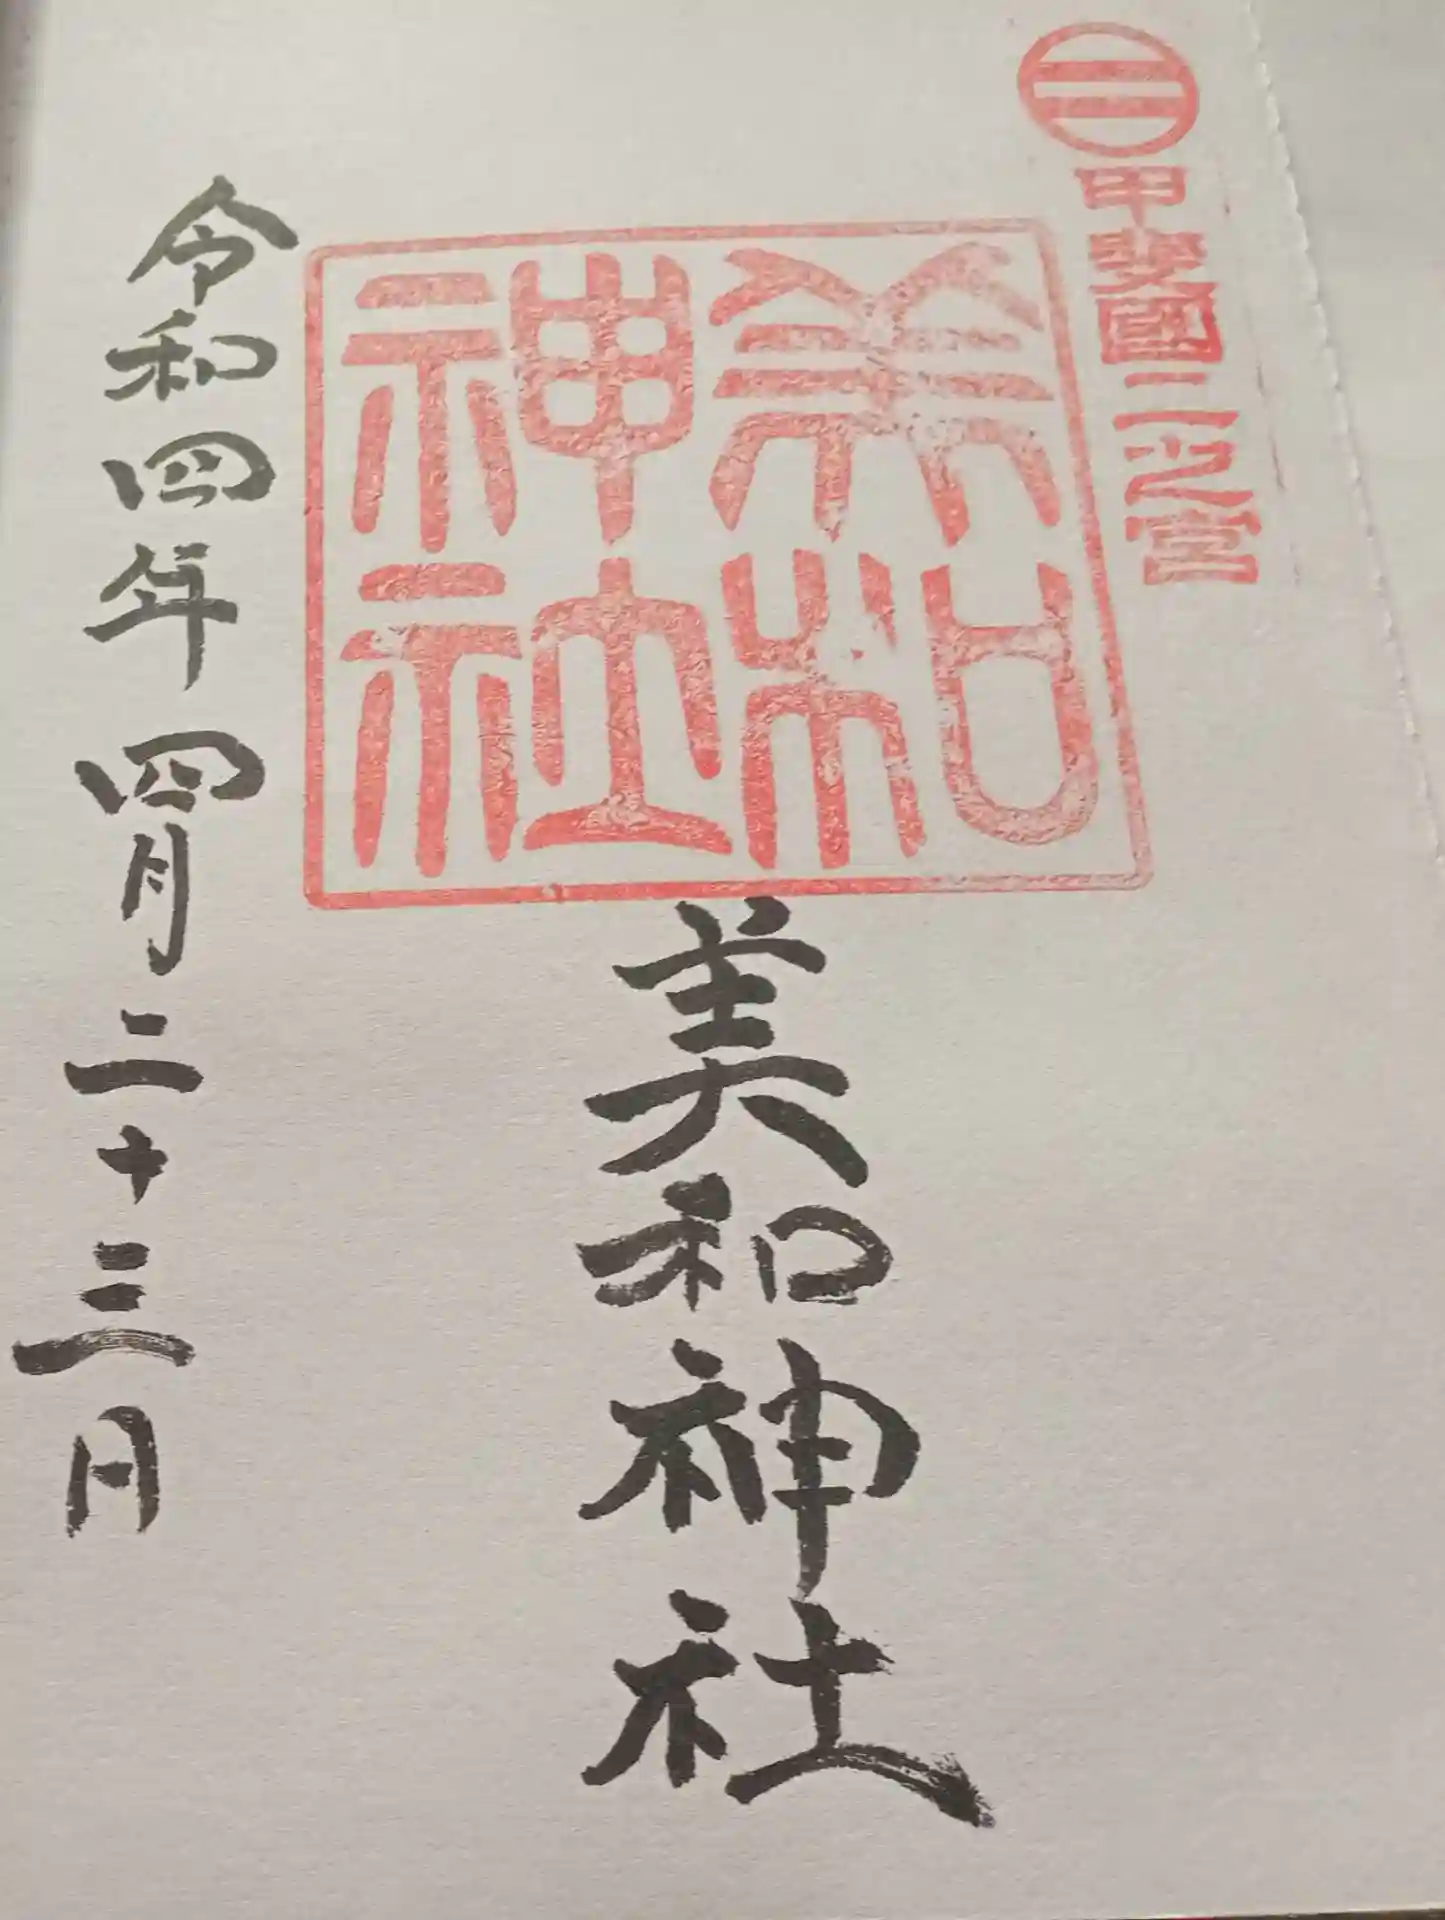 二
甲斐國二之宮
美和
神社
美和神社
令和四年四月二十三日